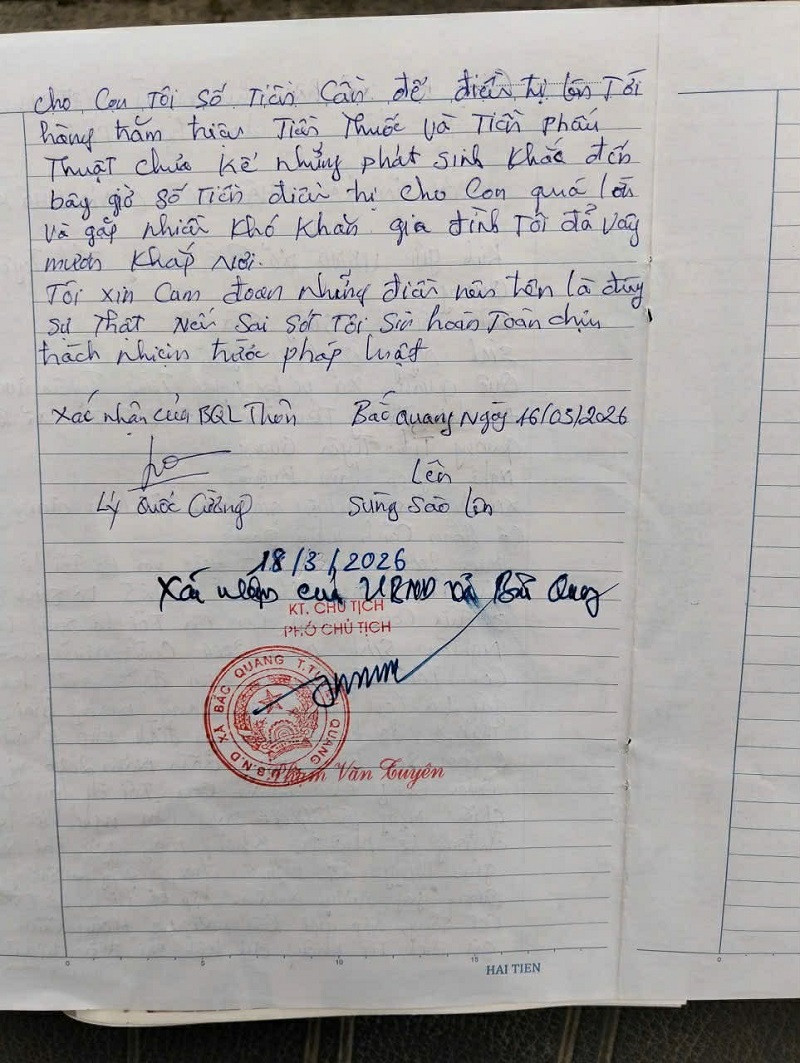 cho Con Tôi Số Tiền Cần để điều trị lên Tới
hàng trăm triệu Tiền Thuốc và Tiền phẩu
Thuật chưa kể những phát sinh khác đến
bây giờ số Tiền điều trị cho Con quá lớn
và gặp nhiều khó khăn gia đình Tôi đã vay
mượn khắp nơi.
Tôi xin Cam đoan những điều nêu trên là đúng
sự Thật Nếu Sai Sót Tôi Sẽ hoàn Toàn chịu
trách nhiệm trước pháp luật
Xác nhận của BQL Thôn Bắc Quang Ngày 16/03/2026
Lên
Lý Quốc Cường Sùng Sào Lên
18/3/2026
Xác nhận của UBND xã Bắc Quang
KT. CHỦ TỊCH
PHÓ CHỦ TỊCH
U.B.N.D XÃ BẮC QUANG T. QUANG
Phạm Văn Tuyên
0 5 10 15
HAI TIEN
0